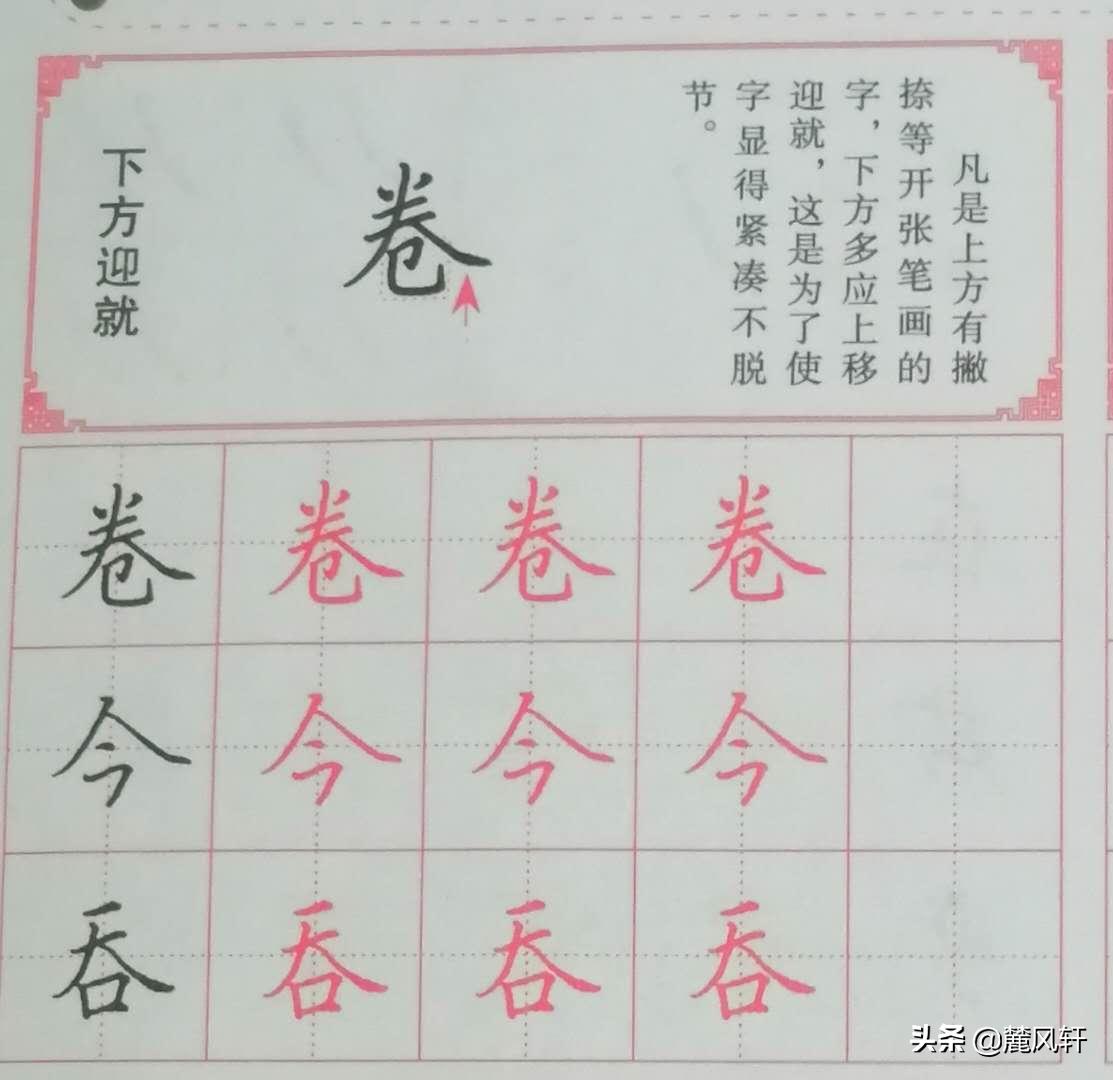 凡是上方有撇
捺等开张笔画的
字，下方多应上移
迎就，这是为了使
字显得紧凑不脱
节。
卷
下方迎就
卷 卷 卷 卷
今 今 今 今
吞 吞 吞 吞
头条 @麓风轩